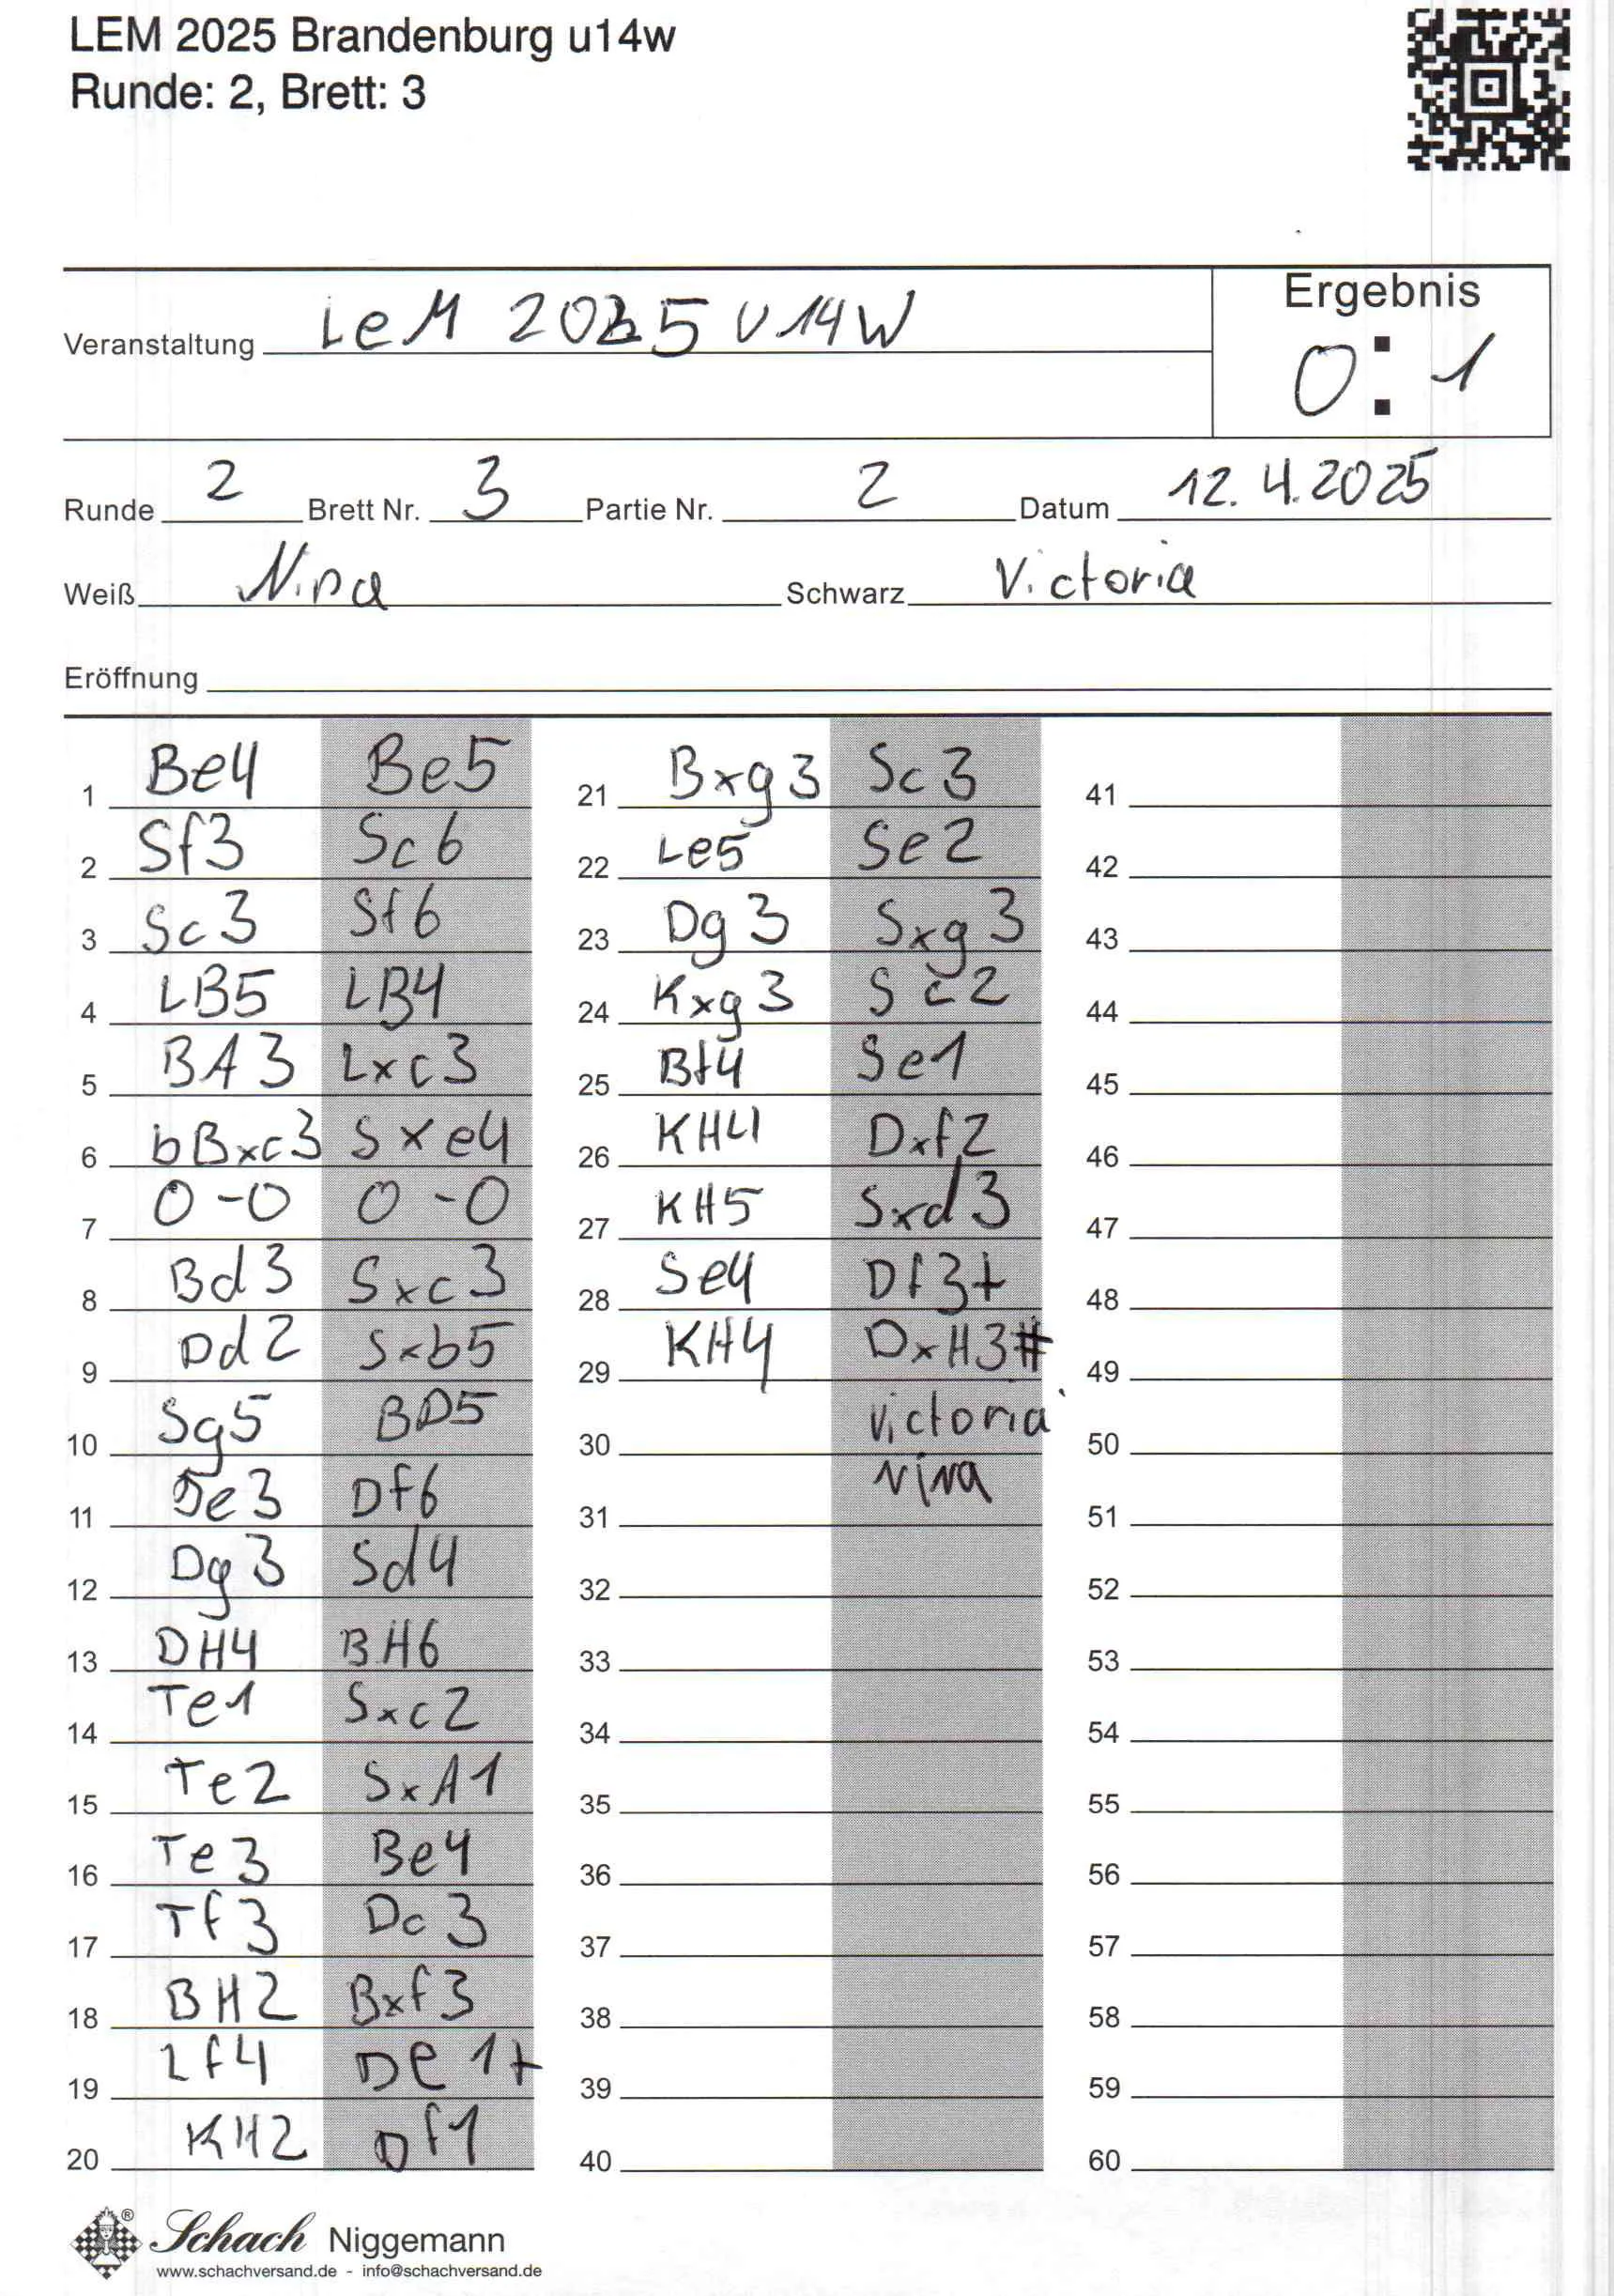 LEM 2025 Brandenburg u14w
Runde: 2, Brett: 3
Ergebnis
Veranstaltung LeM 2025 U14W
0:1
Runde 2 Brett Nr. 3 Partie Nr. 2 Datum 12.4.2025
Weiß Nina Schwarz Victoria
Eröffnung
1 Be4 Be5 21 Bxg3 Sc3 41
2 Sf3 Sc6 22 Le5 Se2 42
3 Sc3 Sf6 23 Dg3 Sxg3 43
4 LB5 LB4 24 Kxg3 Sc2 44
5 BA3 Lxc3 25 Bf4 Se1 45
6 bBxc3 Sxe4 26 KH4 Dxf2 46
7 0-0 0-0 27 KH5 Sxd3 47
8 Bd3 Sxc3 28 Se4 Df3+ 48
9 Dd2 Sxb5 29 KH4 DxH3# 49
10 Sg5 BD5 30 Victoria 50
11 De3 Df6 31 Nina 51
12 Dg3 Sd4 32 52
13 DH4 BH6 33 53
14 Te1 Sxc2 34 54
15 Te2 SxA1 35 55
16 Te3 Be4 36 56
17 Tf3 Dc3 37 57
18 BH2 Bxf3 38 58
19 Lf4 De1+ 39 59
20 KH2 Df1 40 60
® Schach Niggemann
www.schachversand.de - info@schachversand.de